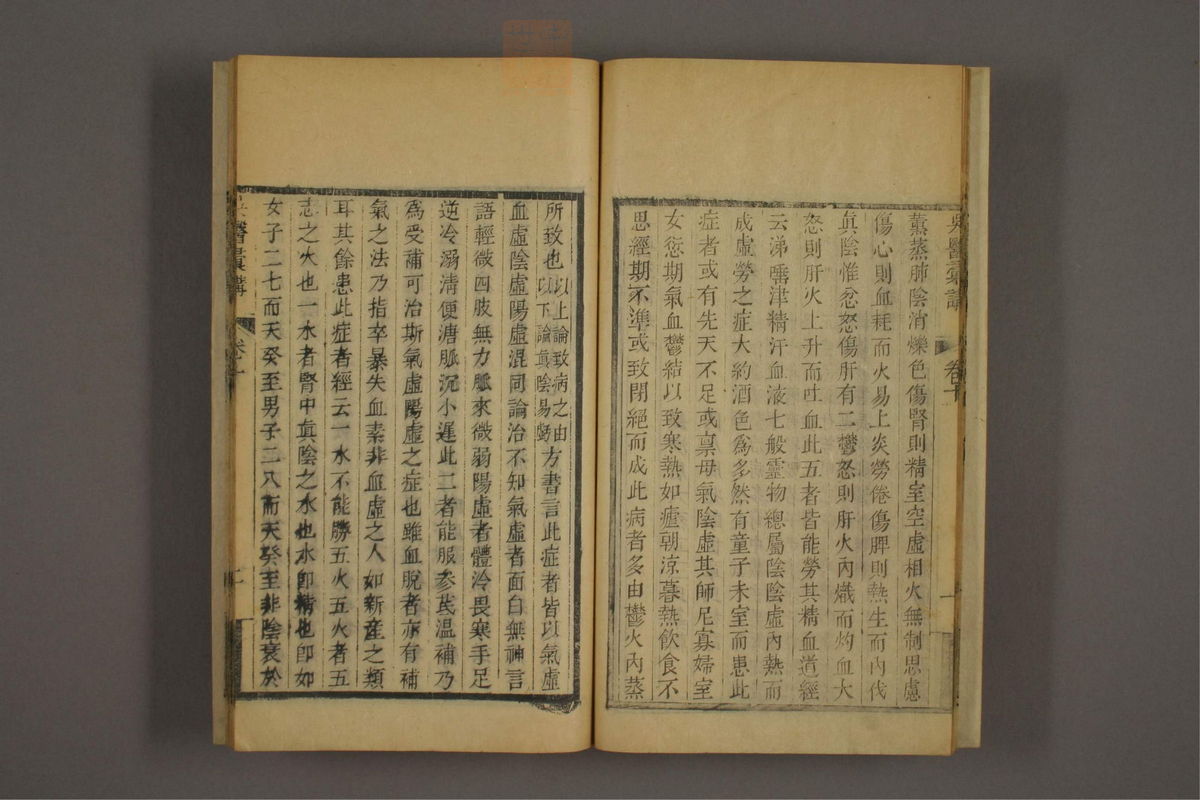 吳醫彙講 卷十 一
薰蒸肺陰消爍色傷腎則精室空虛相火無制思慮
傷心則血耗而火易上炎勞倦傷脾則熱生而內伐
眞陰惟忿怒傷肝有二鬱怒則肝火內熾而灼血大
怒則肝火上升而吐血此五者皆能勞其精血道經
云涕唾津精汗血液七般靈物總屬陰陰虛內熱而
成虛勞之症大約酒色爲多然有童子未室而患此
症者或有先天不足或稟母氣陰虛其師尼寡婦室
女愆期氣血鬱結以致寒熱如瘧朝涼暮熱飲食不
思經期不準或致閉絕而成此病者多由鬱火內蒸
所致也以上論致病之由以下論眞陰易虧方書言此症者皆以氣虛
血虛陰虛陽虛混同論治不知氣虛者面白無神言
語輕微四肢無力脈來微弱陽虛者體冷畏寒手足
逆冷溺清便溏脈沉小遲此二者能服參芪温補乃
爲受補可治斯氣虛陽虛之症也雖血脫者亦有補
氣之法乃指卒暴失血素非血虛之人如新產之類
耳其餘患此症者經云一水不能勝五火五火者五
志之火也一水者腎中眞陰之水也水卽精也卽如
女子二七而天癸至男子二八而天癸至非陰衰於
吳醫彙講 卷十 二